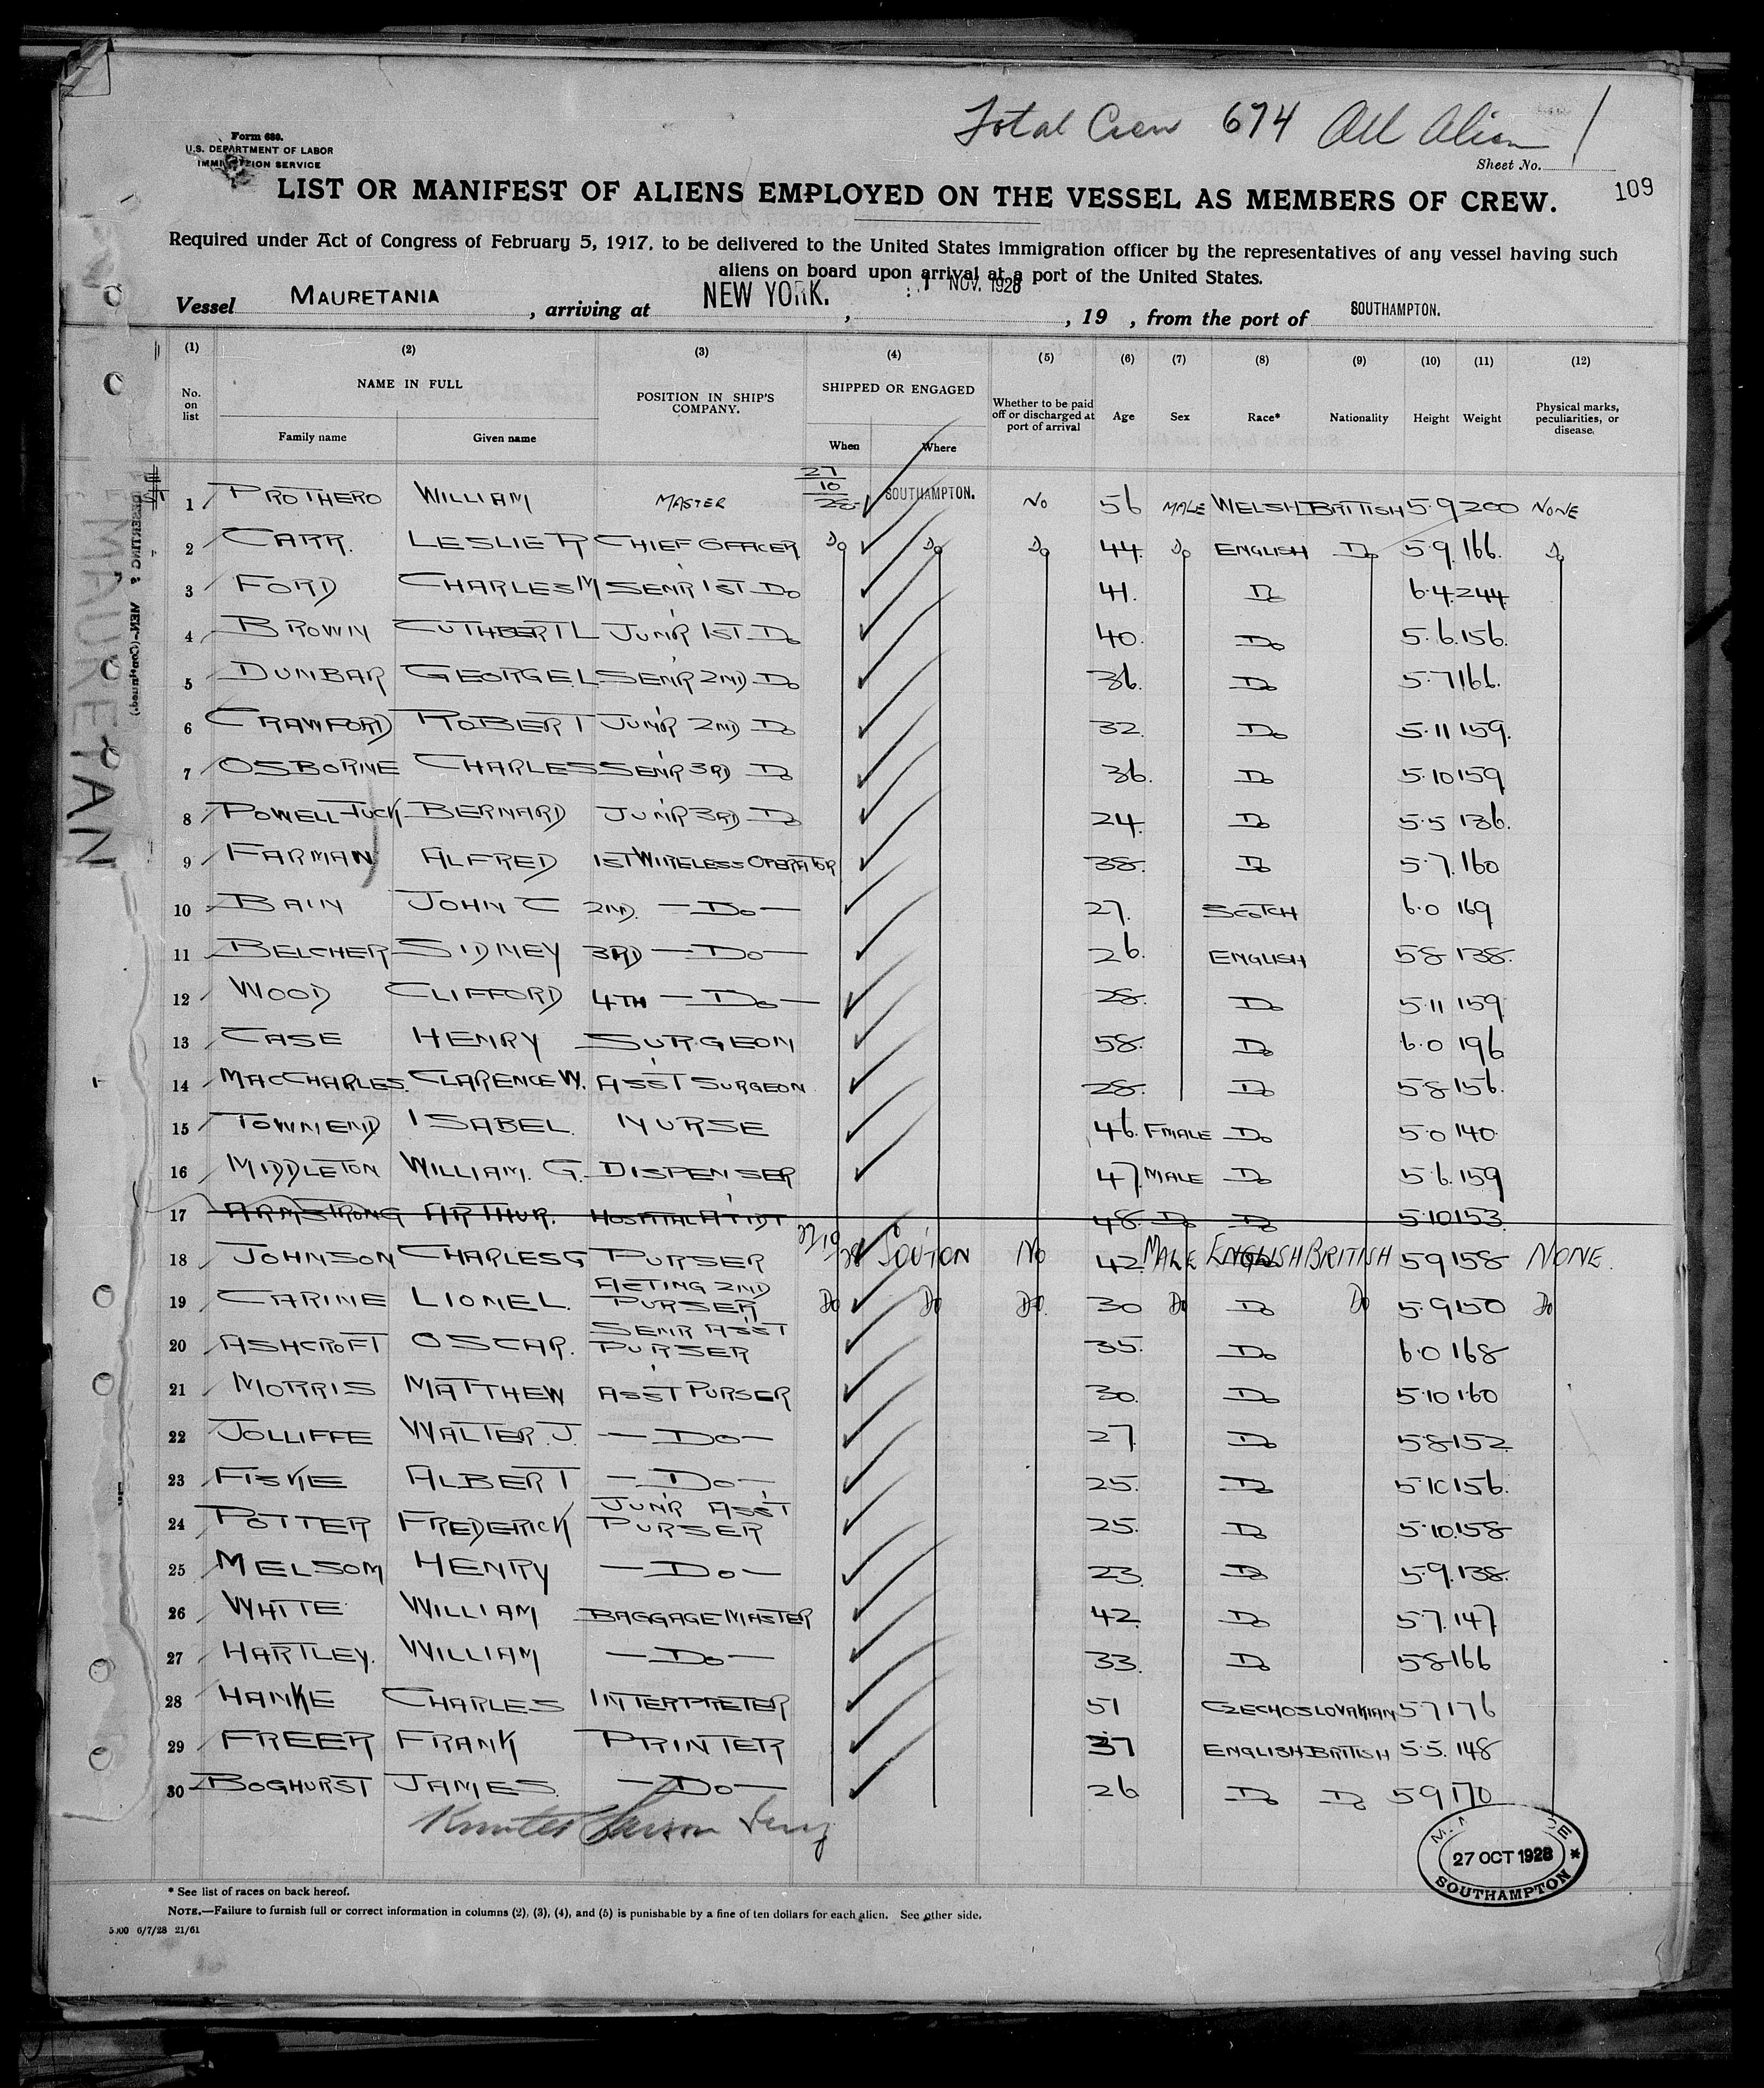 Total Crew 674 All Alien 1
Form 680.
U.S. DEPARTMENT OF LABOR
IMMIGRATION SERVICE
Sheet No.
109
LIST OR MANIFEST OF ALIENS EMPLOYED ON THE VESSEL AS MEMBERS OF CREW.
Required under Act of Congress of February 5, 1917, to be delivered to the United States immigration officer by the representatives of any vessel having such
aliens on board upon arrival at a port of the United States.
Vessel MAURETANIA, arriving at NEW YORK., 1 NOV. 1928, 19 , from the port of SOUTHAMPTON.
(1) (2) (3) (4) (5) (6) (7) (8) (9) (10) (11) (12)
No. on list NAME IN FULL Family name Given name POSITION IN SHIP'S COMPANY. SHIPPED OR ENGAGED When Where Whether to be paid off or discharged at port of arrival Age Sex Race* Nationality Height Weight Physical marks, peculiarities, or disease.
1 PROTHERO WILLIAM MASTER 27/10/28 SOUTHAMPTON. NO 56 MALE WELSH BRITISH 5.9 200 NONE
2 CARR. LESLIE R CHIEF OFFICER Do Do Do 44. Do ENGLISH Do 5.9. 166. Do
3 FORD CHARLES M SENR 1ST Do 41. Do 6.4. 244
4 BROWN CUTHBERT L JUNR 1ST Do 40. Do 5.6. 156.
5 DUNBAR GEORGE.L SENR 2ND Do 36. Do 5.7 166.
6 CRAWFORD ROBERT JUNR 2ND Do 32. Do 5.11 159.
7 OSBORNE CHARLES SENR 3RD Do 36. Do 5.10 159
8 POWELL-TUCK BERNARD JUNR 3RD Do 24. Do 5.5 136.
9 FARMAN ALFRED 1ST WIRELESS OPERATOR 38. Do 5.7. 160
10 BAIN JOHN C 2ND. —Do— 27. SCOTCH 6.0 169
11 BELCHER SIDNEY 3RD —Do— 26. ENGLISH 5.8 138.
12 WOOD CLIFFORD 4TH —Do— 28. Do 5.11 159
13 CASE HENRY SURGEON 58. Do 6.0 196
14 MACCHARLES. CLARENCE W. ASS'T SURGEON 28. Do 5.8 156.
15 TOWNEND ISABEL. NURSE 46. FMALE Do 5.0 140.
16 MIDDLETON WILLIAM. G. DISPENSER 47. MALE Do 5.6. 159
17 ARMSTRONG ARTHUR. HOSPITAL AT'DT 48. Do Do 5.10 153.
18 JOHNSON CHARLES G PURSER 27/10/28 SOUTON NO 42. MALE ENGLISH BRITISH 5.9 158 NONE.
19 CARINE LIONEL. ACTING 2ND PURSER Do Do Do. 30 Do Do Do 5.9 150 Do
20 ASHCROFT OSCAR. SENR ASS'T PURSER 35. Do 6.0 168
21 MORRIS MATTHEW ASS'T PURSER 30. Do 5.10 160
22 JOLLIFFE WALTER.J. —Do— 27. Do 5.8 152
23 FISKE ALBERT —Do— 25. Do 5.10 156.
24 POTTER FREDERICK JUN'R ASS'T PURSER 25. Do 5.10. 158
25 MELSOM HENRY —Do— 23. Do 5.9. 138.
26 WHITE WILLIAM BAGGAGE MASTER 42. Do 5.7. 147
27 HARTLEY. WILLIAM —Do— 33. Do 5.8 166
28 HANKE CHARLES INTERPRETER 51 CZECHOSLOVAKIAN 5.7 176
29 FREER FRANK PRINTER 37 ENGLISH BRITISH 5.5. 148
30 BOGHURST JAMES. —Do— 26 Do Do 5.9 170
27 OCT 1928
SOUTHAMPTON
* See list of races on back hereof.
NOTE.—Failure to furnish full or correct information in columns (2), (3), (4), and (5) is punishable by a fine of ten dollars for each alien. See other side.
6/7/28 21/61
MAURETAN